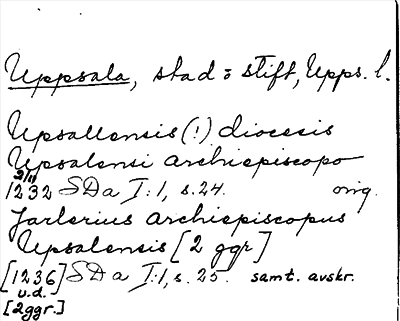 Uppsala, stad o stift, Upps. l.
Upsallensis (!) diocesis
Upsalensi archiepiscopo
2/11
1232 SDa I:1, s. 24. orig.
Jarlerius archiepiscopus
Upsalensis [2 ggr]
[1236] SDa I:1, s. 25. samt. avskr.
u.d.
[2ggr.]